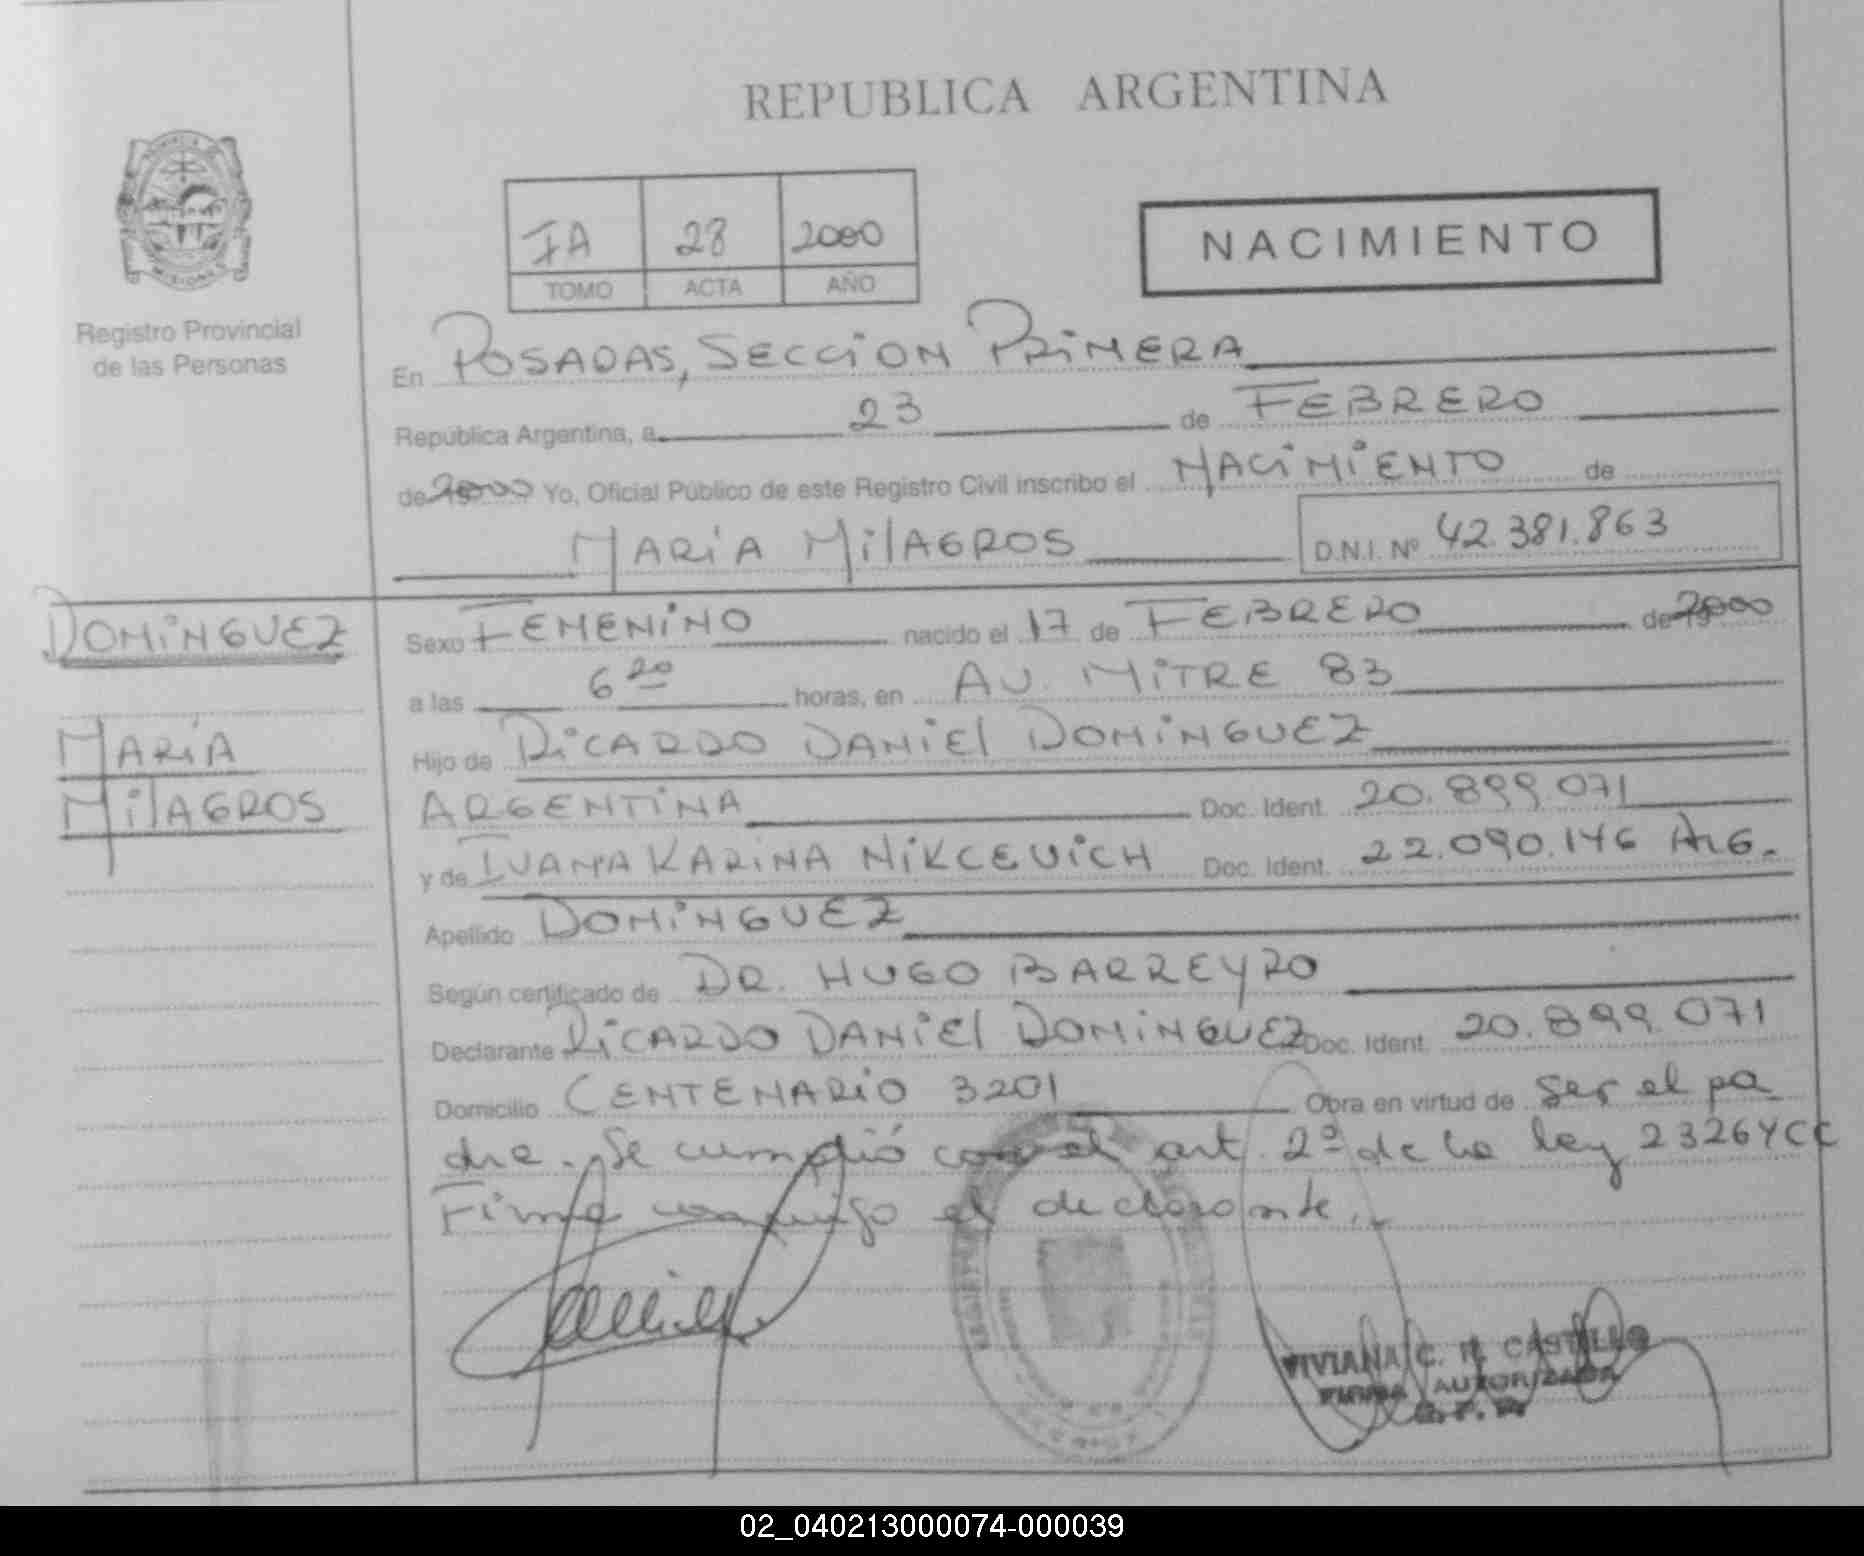 REPUBLICA ARGENTINA
IA 28 2000
TOMO ACTA AÑO
NACIMIENTO
PROVINCIA DE
MISIONES
Registro Provincial
de las Personas
En POSADAS, SECCION PRIMERA
República Argentina, a 23 de FEBRERO
de 2000 Yo, Oficial Público de este Registro Civil inscribo el NACIMIENTO de
MARIA MILAGROS D.N.I. Nº 42.381.863
DOMINGUEZ
MARIA
MILAGROS
Sexo FEMENINO nacido el 17 de FEBRERO de 2000
a las 6 20 horas, en AV. MITRE 83
Hijo de RICARDO DANIEL DOMINGUEZ
ARGENTINA Doc. Ident. 20.899.071
y de IVANA KARINA NIKCEVICH Doc. Ident. 22.090.146 ARG.
Apellido DOMINGUEZ
Según certificado de DR. HUGO BARREYRO
Declarante RICARDO DANIEL DOMINGUEZ Doc. Ident. 20.899.071
Domicilio CENTENARIO 3201 Obra en virtud de ser el pa
dre. Se cumplió con el art. 2º de la ley 23264 CC
Firma conmigo el declarante.
VIVIANA C. CASTILLO
FIRMA AUTORIZADA
02_040213000074-000039